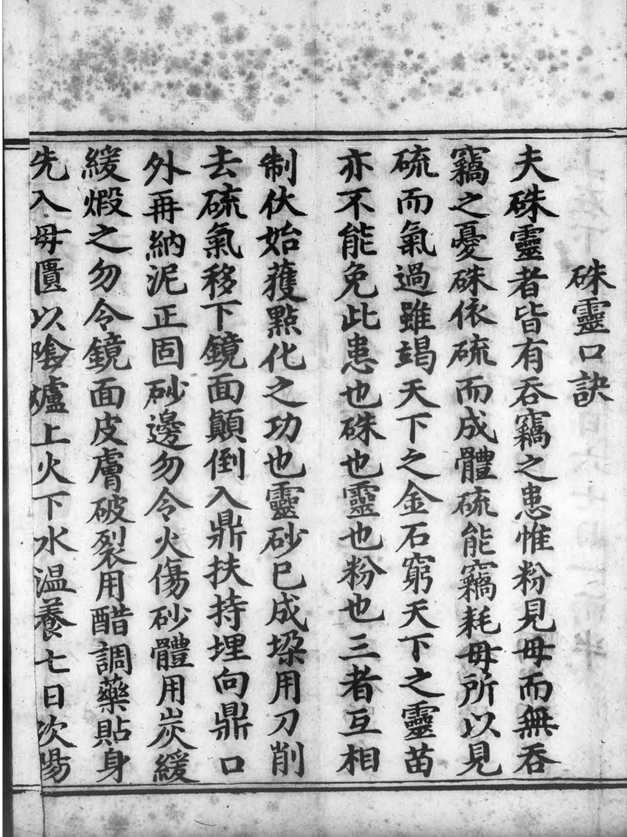 硃靈口訣
夫硃靈者皆有吞竊之患惟粉見母而無吞
竊之憂硃依硫而成體硫能竊耗母所以見
硫而氣過雖竭天下之金石窮天下之靈苗
亦不能免此患也硃也靈也粉也三者互相
制伏始獲點化之功也靈砂已成垜用刀削
去硫氣移下鏡面顛倒入鼎扶持埋向鼎口
外再納泥正固砂邊勿令火傷砂體用炭緩
緩煆之勿令鏡面皮膚破裂用醋調藥貼身
先入母匱以陰爐上火下水溫養七日次陽